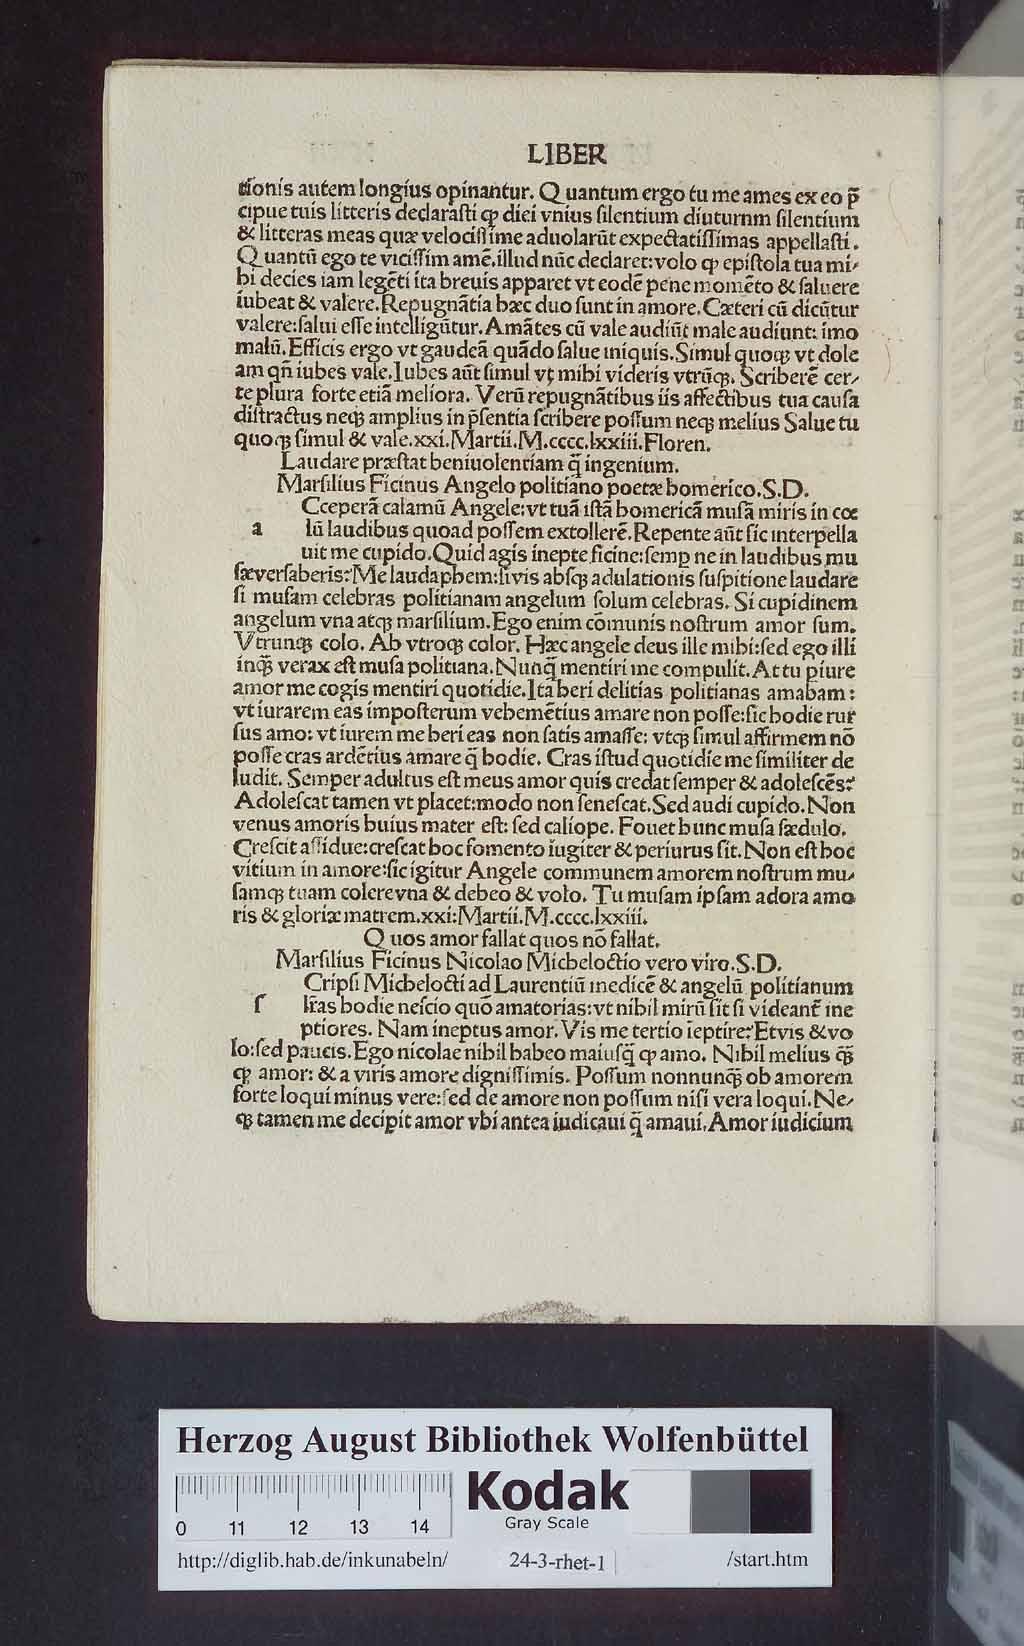 LIBER
tionis autem longius opinantur. Quantum ergo tu me ames ex eo p̄
cipue tuis litteris declarasti ꝙ diei vnius silentium diuturnm silentium
& litteras meas quæ velocissime aduolarūt expectatissimas appellasti.
Quantū ego te vicissim amē, illud nūc declaret: volo ꝙ epistola tua mi-
hi decies iam legēti ita breuis apparet vt eodē pene momēto & saluere
iubeat & valere. Repugnātia hæc duo sunt in amore. Cæteri cū dicūtur
valere: salui esse intelligūtur. Amātes cū vale audiūt male audiunt: imo
malū. Efficis ergo vt gaudeā quādo salue iniquis. Simul quoqꝫ vt dole
am qn̄ iubes vale. Iubes aūt simul vt mihi videris vtrūqꝫ. Scriberē cer-
te plura forte etiā meliora. Verū repugnātibus iis affectibus tua causa
distractus neqꝫ amplius in p̄sentia scribere possum neqꝫ melius Salue tu
quoqꝫ simul & vale. xxi. Martii. M.cccc.lxxiii. Floren.
Laudare præstat beniuolentiam q̄ ingenium.
Marsilius Ficinus Angelo politiano poetæ homerico. S.D.
Cceperā calamū Angele: vt tuā istā homericā musā miris in cœ
a lū laudibus quoad possem extollerē. Repente aūt sic interpella
uit me cupido. Quid agis inepte ficine: semꝑ ne in laudibus mu
sæ versaberis? Me lauda phem: si vis absqꝫ adulationis suspitione laudare
si musam celebras politianam angelum solum celebras. Si cupidinem
angelum vna atqꝫ marsilium. Ego enim cōmunis nostrum amor sum.
Vtrunqꝫ colo. Ab vtroqꝫ color. Hæc angele deus ille mihi: sed ego illi
inqꝫ̄ verax est musa politiana. Nunq̄ mentiri me compulit. At tu ꝑiure
amor me cogis mentiri quotidie. Ita heri delitias politianas amabam:
vt iurarem eas imposterum vehemētius amare non posse: sic hodie rur
sus amo: vt iurem me heri eas non satis amasse: vtqꝫ simul affirmem nō
posse cras ardētius amare q̄ hodie. Cras istud quotidie me similiter de
ludit. Semper adultus est meus amor quis credat semper & adolescēs?
Adolescat tamen vt placet: modo non senescat. Sed audi cupido. Non
venus amoris huius mater est: sed caliope. Fouet hunc musa sædulo.
Crescit assidue: crescat hoc fomento iugiter & periurus sit. Non est hoc
vitium in amore: sic igitur Angele communem amorem nostrum mu-
samqꝫ tuam colere vna & debeo & volo. Tu musam ipsam adora amo
ris & gloriæ matrem. xxi: Martii. M.cccc.lxxiii.
Quos amor fallat quos nō fallat.
Marsilius Ficinus Nicolao Micheloctio vero viro. S.D.
Cripsi Michelocti ad Laurentiū medicē & angelū politianum
ſ lr̄as hodie nescio quō amatorias: vt nihil mirū sit si videant̄ ine
ptiores. Nam ineptus amor. Vis me tertio īeptire? Et vis & vo
lo: sed paucis. Ego nicolae nihil habeo maiusq̄ ꝙ amo. Nihil melius qꝫ̄
ꝙ amor: & a viris amore dignissimis. Possum nonnunqꝫ̄ ob amorem
forte loqui minus vere: sed de amore non possum nisi vera loqui. Ne-
qꝫ tamen me decipit amor vbi antea iudicaui q̄ amaui. Amor iudicium
Herzog August Bibliothek Wolfenbüttel
Kodak
Gray Scale
0 11 12 13 14
http://diglib.hab.de/inkunabeln/ 24-3-rhet-1 /start.htm